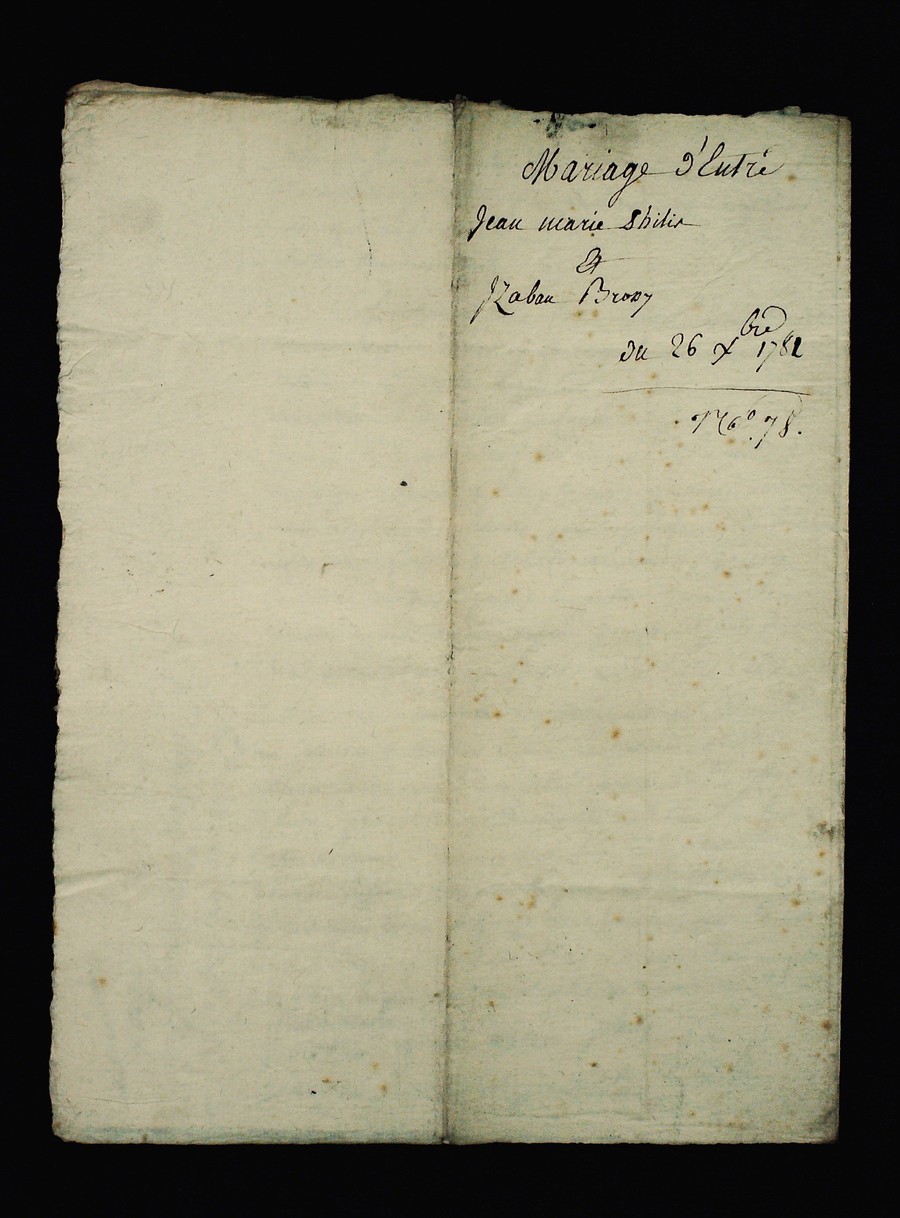 Mariage d'Entre
Jean marie Philis
&
Izabau Brony
du 26 xbre 1781
No. 78.